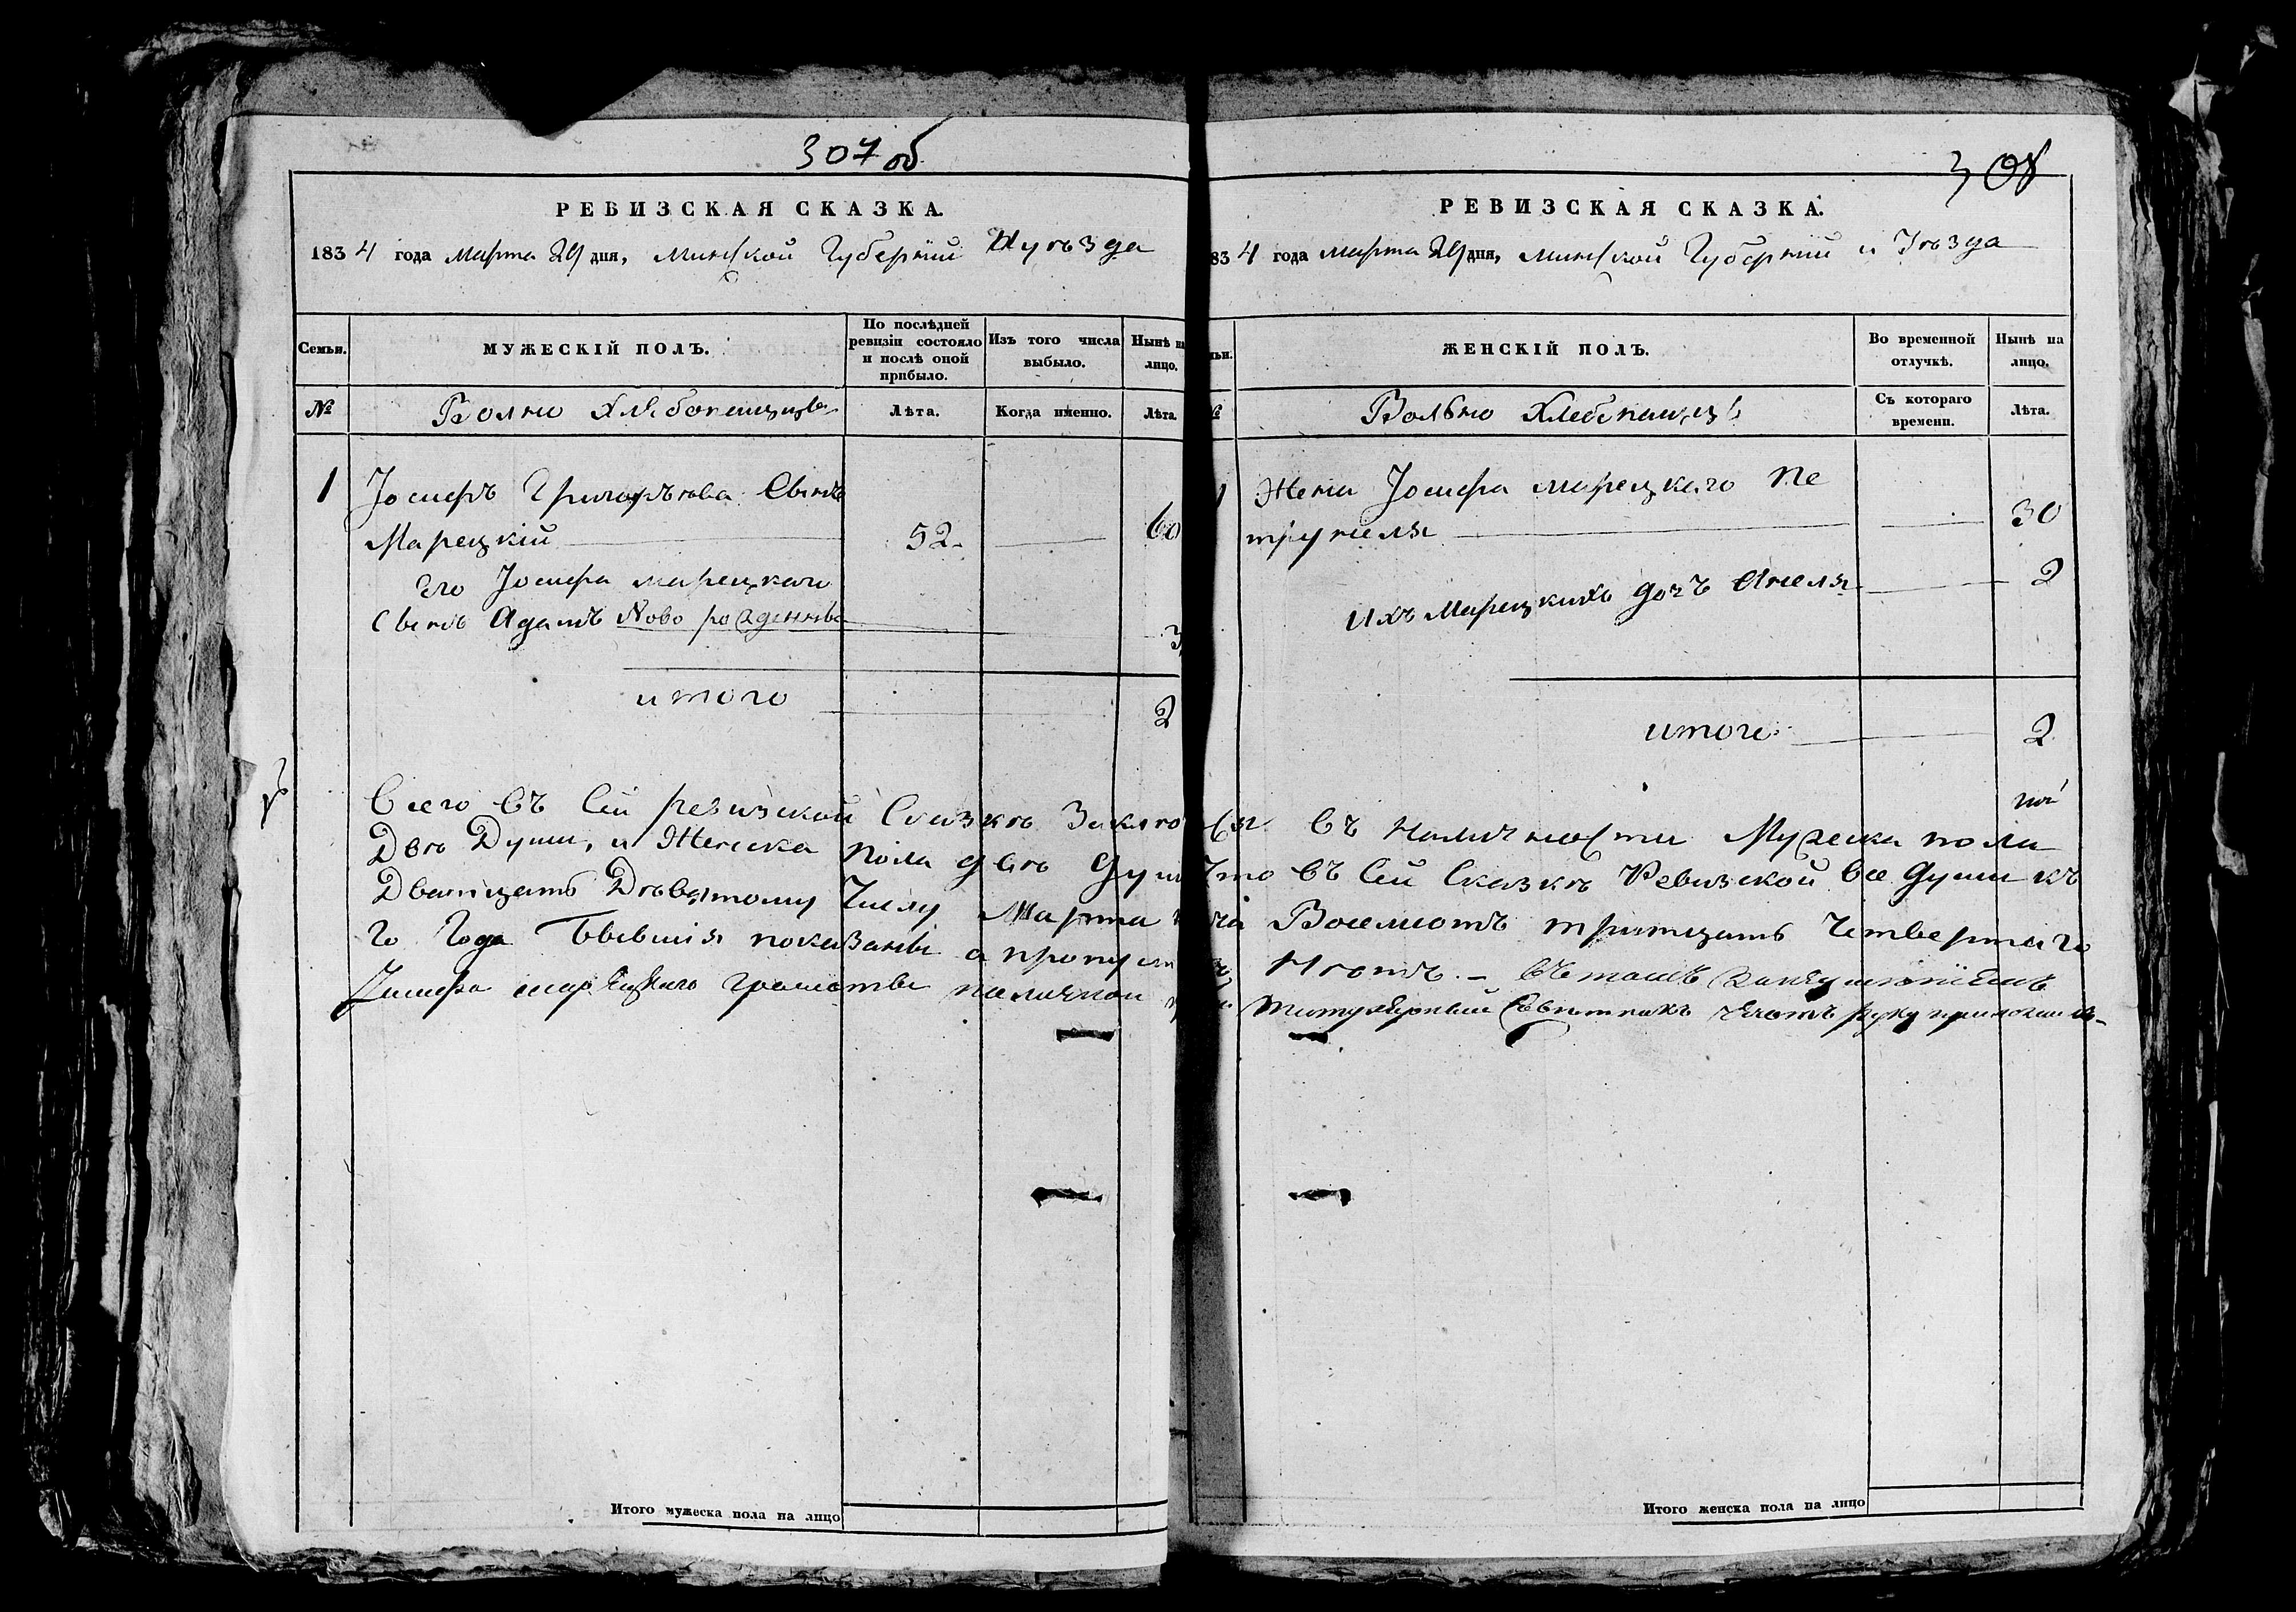 307 об
РЕВИЗСКАЯ СКАЗКА.
1834 года Марта 29 дня, Минской Губернии И уѣзда
Семьи.
МУЖЕСКІЙ ПОЛЪ.
По послѣдней ревизіи состояло и послѣ оной прибыло.
Изъ того числа выбыло.
Нынѣ на лицо.
№
Волно Хлѣбопашцы
Лѣта.
Когда именно.
Лѣта.
1 Іосифъ Григорьева Сынъ
Марецкій 52 60
Его Іосифа Марецкаго
Сынъ Адамъ Ново рожденны 3
итого 2
308
РЕВИЗСКАЯ СКАЗКА.
834 года Марта 29 дня, Минской Губерніи и Уѣзда
ЖЕНСКІЙ ПОЛЪ.
Во временной отлучкѣ.
Нынѣ на лицо.
№
Вольно Хлебпашцы
Съ котораго времени.
Лѣта.
1 Жена Іосифа Марецкаго Пе
трунеля 30
Ихъ Марецкихъ дочъ Анеля 2
итого 2
Всего Въ Сей ревизской Сказкѣ Заключ ся Въ Наличности Мужеска пола
Двѣ Души, и Женска пола двѣ души Что Въ Сей Сказкѣ Ревизской Все Души къ
Дватцать Дѣвятому Числу Марта Восемьотъ тритцать Четвертаго
Го Года Бывшія показаны а пропущ Нѣтъ. – Въ томъ
Іосифа Марецкаго грамотѣ Титулярный Совѣтникъ руку приложилъ
Итого мужеска пола на лицо
Итого женска пола на лицо